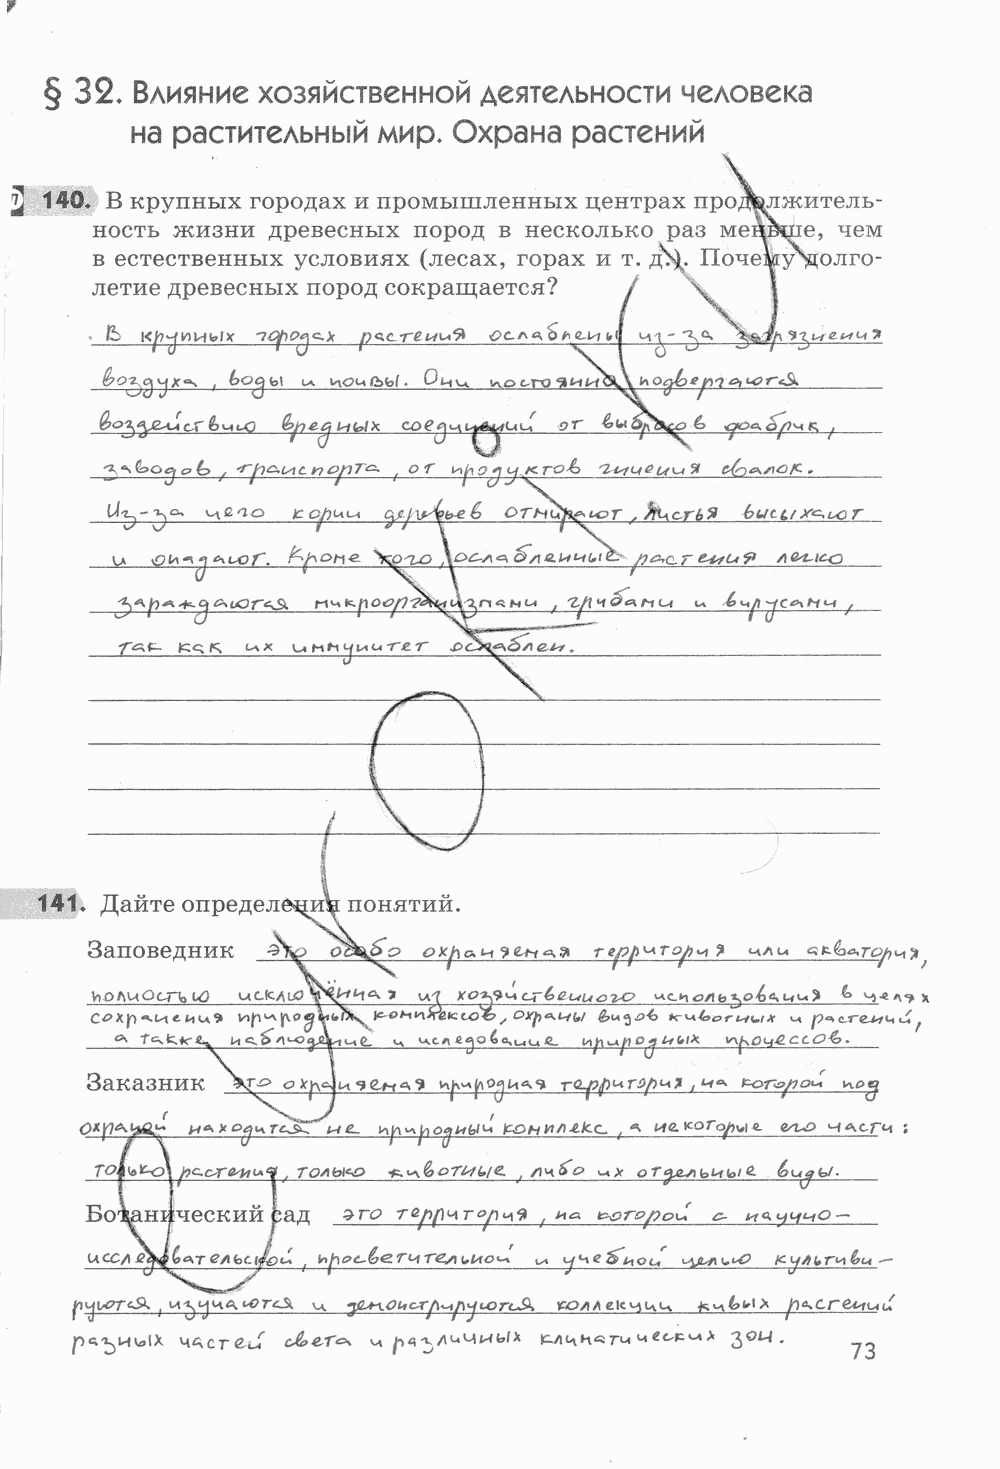 § 32. Влияние хозяйственной деятельности человека
на растительный мир. Охрана растений
140. В крупных городах и промышленных центрах продолжитель-
ность жизни древесных пород в несколько раз меньше, чем
в естественных условиях (лесах, горах и т. д.). Почему долго-
летие древесных пород сокращается?
В крупных городах растения ослаблены из-за загрязнения
воздуха, воды и почвы. Они постоянно подвергаются
воздействию вредных соединений от выбросов фабрик,
заводов, транспорта, от продуктов гниения свалок.
Из-за чего корни деревьев отмирают, листья высыхают
и опадают. Кроме того, ослабленные растения легко
заражаются микроорганизмами, грибами и вирусами,
так как их иммунитет ослаблен.
141. Дайте определения понятий.
Заповедник это особо охраняемая территория или акватория,
полностью исключённая из хозяйственного использования в целях
сохранения природных комплексов, охраны видов животных и растений,
а также наблюдение и иследование природных процессов.
Заказник это охраняемая природная территория, на которой под
охраной находится не природный комплекс, а некоторые его части:
только растения, только животные, либо их отдельные виды.
Ботанический сад это территория, на которой с научно-
исследовательской, просветительной и учебной целью культиви-
руются, изучаются и демонстрируются коллекции живых растений
разных частей света и различных климатических зон.
73
gdz
уроки.ru